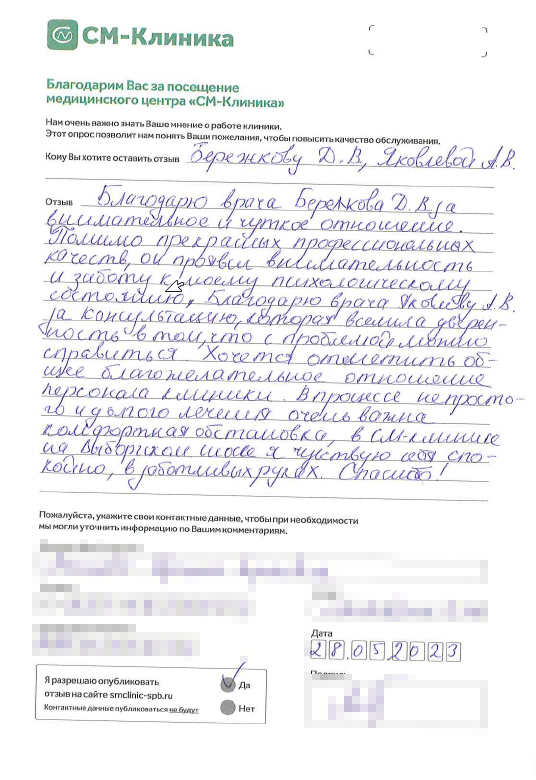 СМ-Клиника
Благодарим Вас за посещение
медицинского центра «СМ-Клиника»
Нам очень важно знать Ваше мнение о работе клиники.
Этот опрос позволит нам понять Ваши пожелания, чтобы повысить качество обслуживания.
Кому Вы хотите оставить отзыв Бережкову Д.В, Яковлевой А.В.
Отзыв Благодарю врача Бережкова Д.В за
внимательное и чуткое отношение.
Помимо прекрасных профессиональных
качеств, он проявил внимательность
и заботу к моему психологическому
состоянию, Благодарю врача Яковлеву А.В.
за консультацию, которая вселила уверен-
ность в том, что с проблемой можно
справиться. Хочется отметить об-
щее благожелательное отношение
персонала клиники. В процессе непросто-
го и долгого лечения очень важна
комфортная обстановка, в СМ-клинике
на Выборгском шоссе я чувствую себя спо-
койно, в заботливых руках. Спасибо!
Пожалуйста, укажите свои контактные данные, чтобы при необходимости
мы могли уточнить информацию по Вашим комментариям.
Дата
28.052023
Я разрешаю опубликовать
отзыв на сайте smclinic-spb.ru
Контактные данные публиковаться не будут
Да
Нет